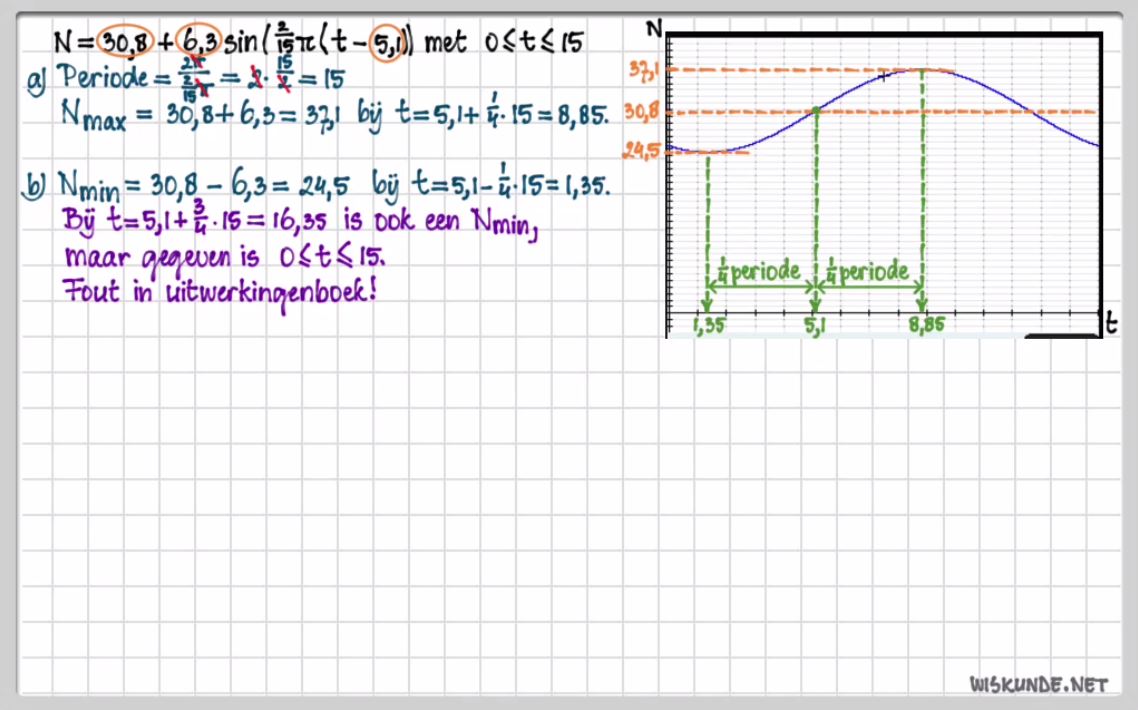 N = 30,8 + 6,3 sin(2/15 π(t − 5,1)) met 0 ≤ t ≤ 15
a) Periode = 2π / (2/15 π) = 2 · 15/2 = 15
Nmax = 30,8 + 6,3 = 37,1 bij t = 5,1 + 1/4 · 15 = 8,85.
b) Nmin = 30,8 − 6,3 = 24,5 bij t = 5,1 − 1/4 · 15 = 1,35.
Bij t = 5,1 + 3/4 · 15 = 16,35 is ook een Nmin,
maar gegeven is 0 ≤ t ≤ 15.
Fout in uitwerkingenboek!
N
37,1
30,8
24,5
1/4 periode 1/4 periode
1,35 5,1 8,85 t
WISKUNDE.NET